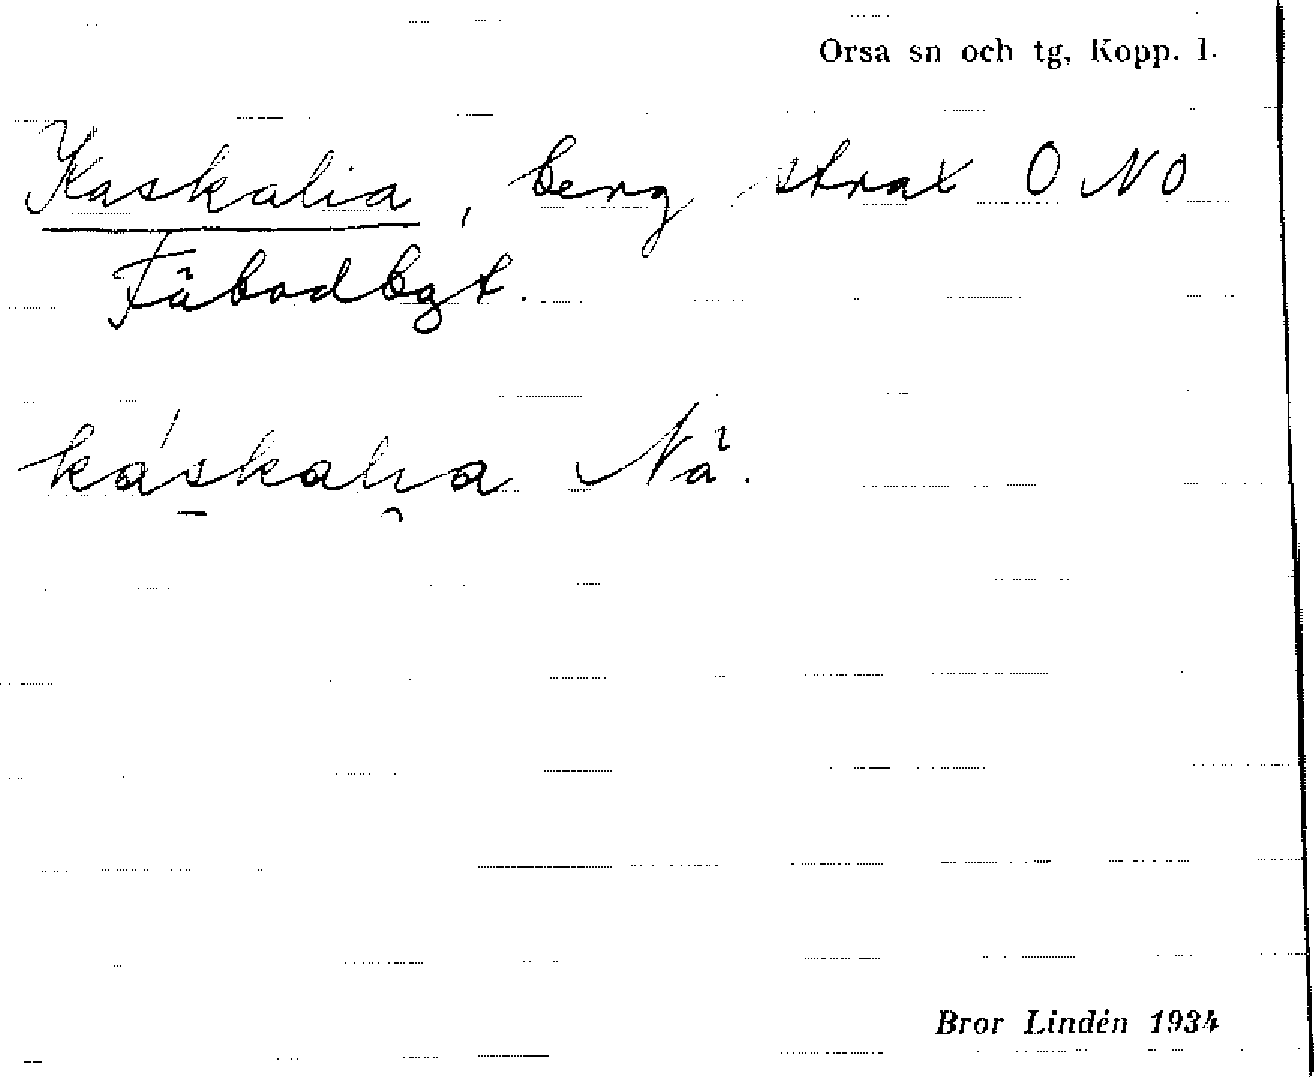 Orsa sn och tg, Kopp. l.
Kaskalia, berg strax ONO
Fäbodbgt.
káskalia Nä.
Bror Lindén 1934